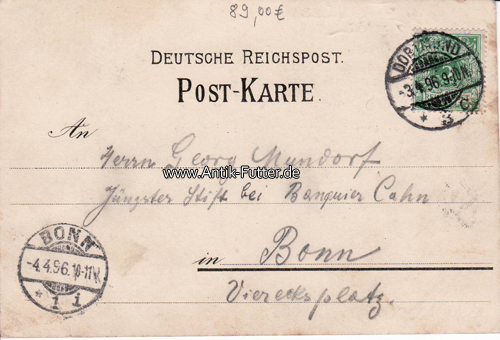 89,00€
DEUTSCHE REICHSPOST.
POST-KARTE.
DORTMUND
-3.4.96.9-10N.
* 3 c.
An
Herrn Georg Mundorf
www.Antik-Futter.de
Jüngster Stift bei Banquier Cahn
in Bonn
Vierecksplatz.
BONN
-4.4.96.10-11V.
* 1 i